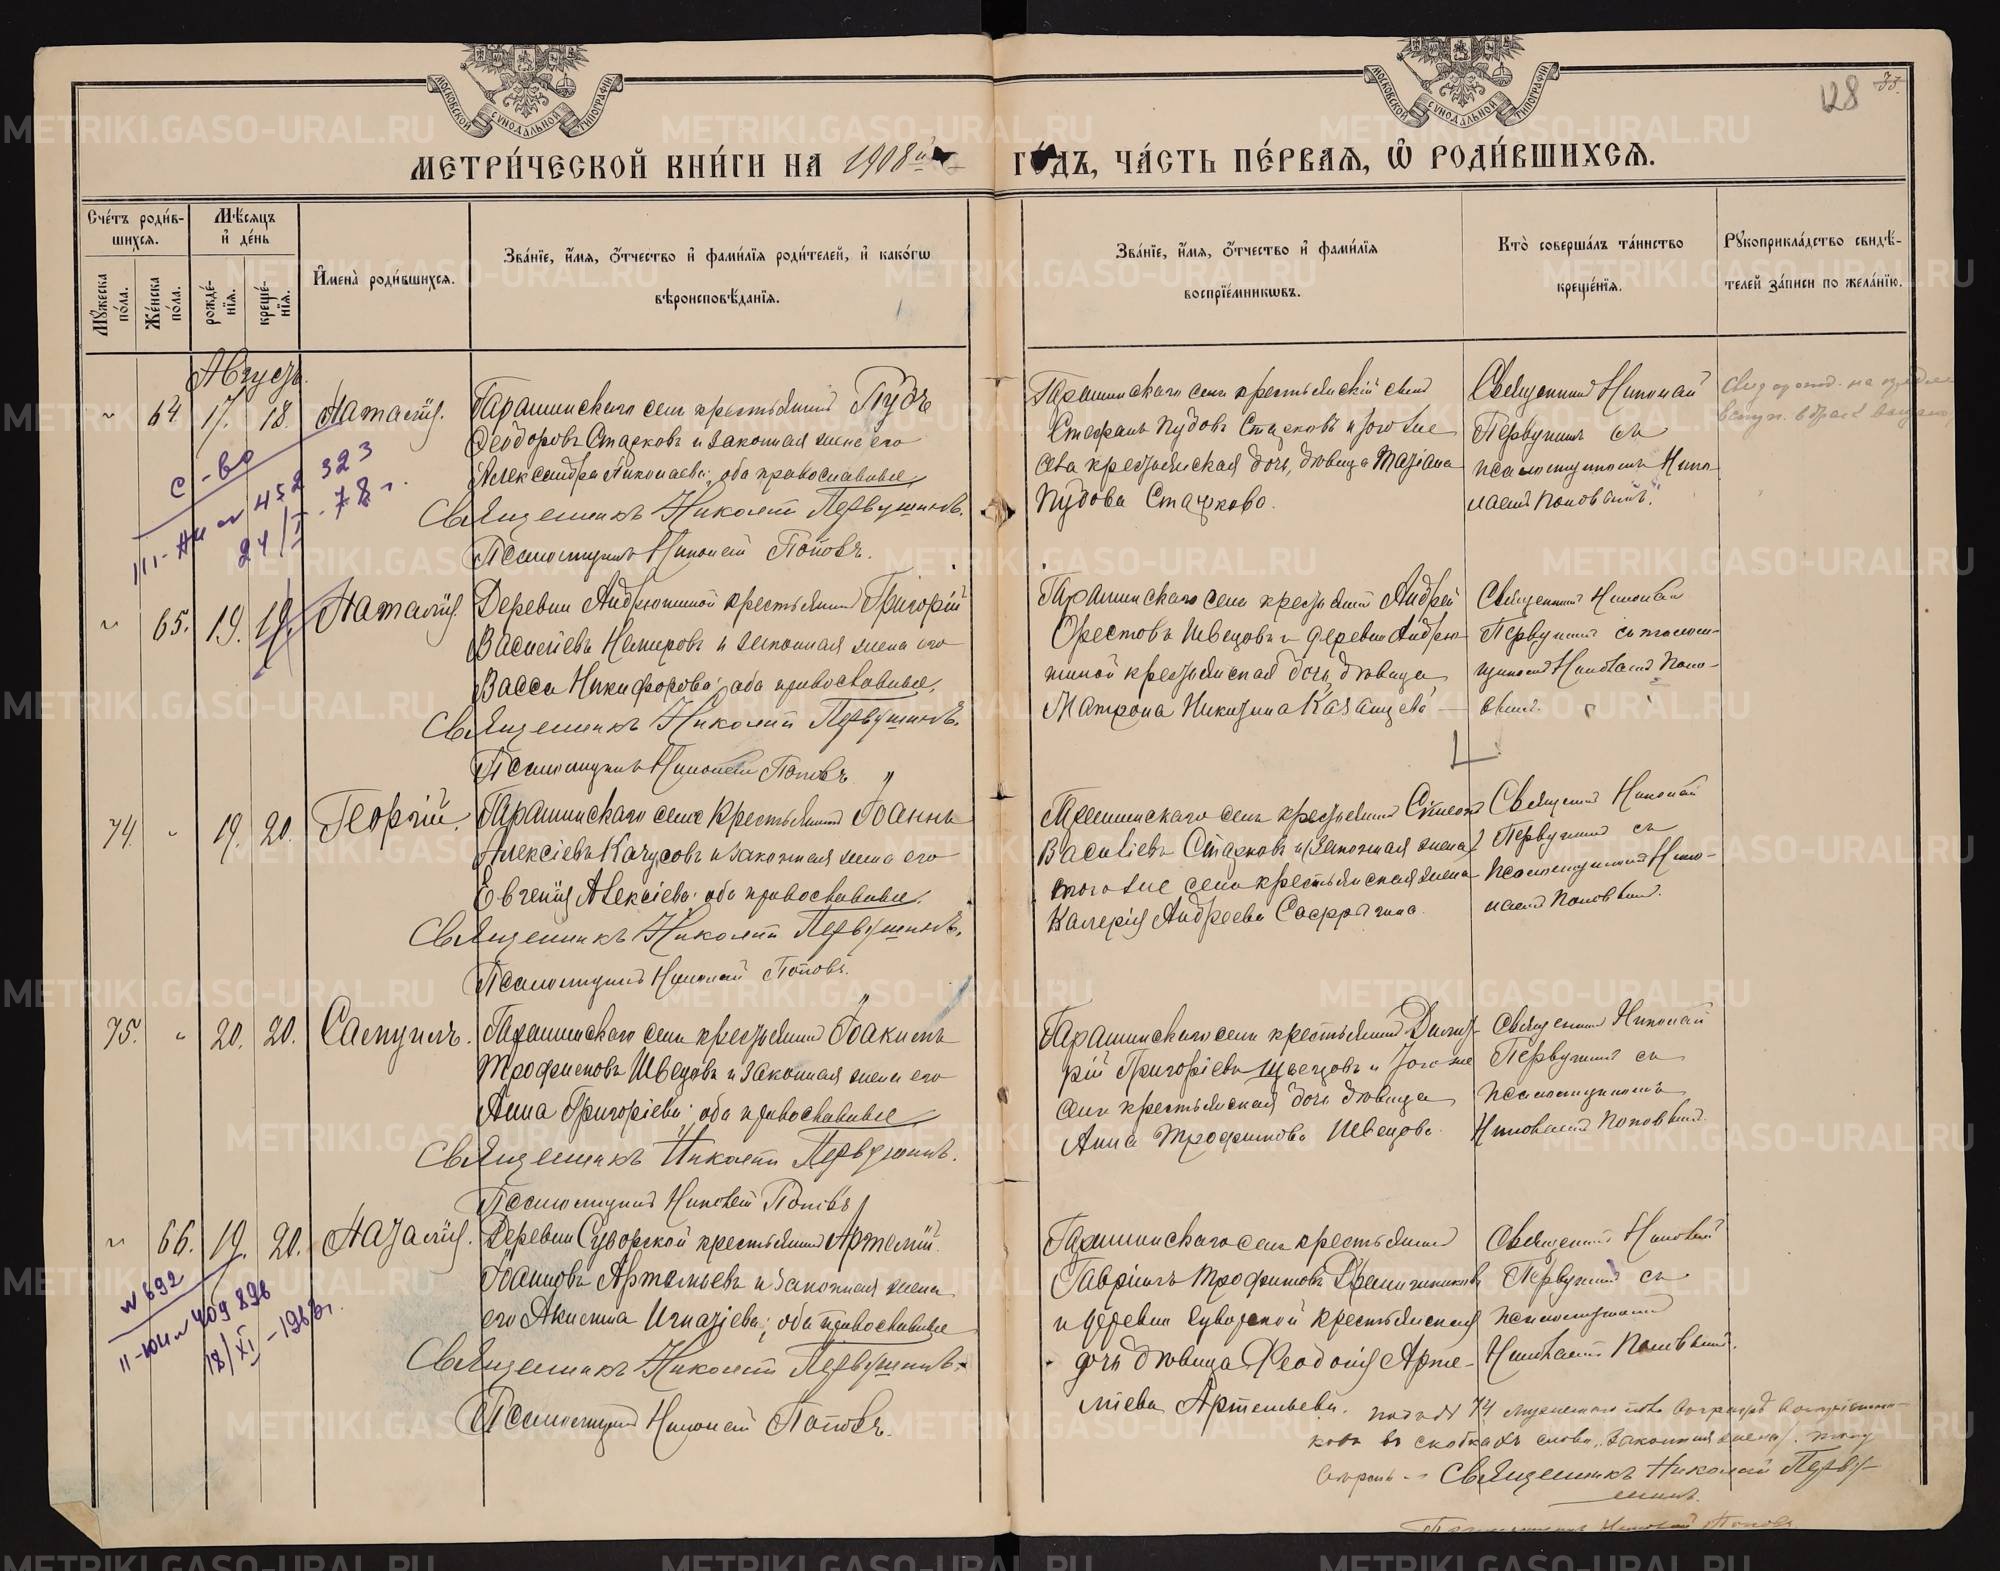 МОСКОВСКОЙ СѴНОДАЛЬНОЙ ТИПОГРАФІИ
МОСКОВСКОЙ СѴНОДАЛЬНОЙ ТИПОГРАФІИ
128
33.
МЕТРИ́ЧЕСКОЙ КНИ́ГИ НА 1908й ГО́ДЪ, ЧА́СТЬ ПЕ́РВАЯ, Ѡ҆ РОДИ́ВШИХСЯ.
Сче́тъ роди́в-
шихся.
Мѣ́сяцъ
и҆ де́нь
Мꙋ́жеска по́ла.
Же́нска по́ла.
рожде́-
нїя.
креще́-
нїя.
И҆мена̀ роди́вшихся.
Зва́нїе, и҆́мя, о҆́тчество и҆ фами́лїя роди́телей, и҆ како́гѡ
вѣроисповѣ́данїя.
Зва́нїе, и҆́мя, о҆́тчество и҆ фами́лїя
воспрїе́мникѡвъ.
Кто̀ соверша́лъ та́инство
креще́нїя.
Рꙋкоприкла́дство свидѣ́-
телей за́писи по жела́нїю.
Августъ.
64 17. 18. Наталія.
Гарашинскаго села крестьянинъ Пудъ
Ѳеодоровъ Старковъ и законная жена его
Александра Николаева; оба православные
Священникъ Николай Первушинъ.
Псаломщикъ Николай Поповъ.
Гарашинскаго села крестьянскій сынъ
Стефанъ Пудовъ Старковъ и того же
села крестьянская дочь, дѣвица Татіана
Пудова Старкова.
Священникъ Николай
Первушинъ съ
псаломщикомъ Нико-
лаемъ Поповымъ.
с-во
III-АИ № 452 323
24/I-78 г.
65. 19. 19. Наталія.
Деревни Андрюшиной крестьянинъ Григорій
Василіевъ и законная жена его
Васса Никифорова; оба православные.
Священникъ Николай Первушинъ.
Псаломщикъ Николай Поповъ
Гарашинскаго села крестьянинъ Андрей
Орестовъ Швецовъ и деревни Андрю-
шиной крестьянская дочь, дѣвица
Матрона Никитина Казанцева
Священникъ Николай
Первушинъ съ псалом-
щикомъ Николаемъ Попо-
вымъ.
74. 19. 20. Георгій.
Гарашинскаго села крестьянинъ Іоаннъ
Алексіевъ Качусовъ и законная жена его
Евгенія Алексіева; оба православные.
Священникъ Николай Первушинъ.
Псаломщикъ Николай Поповъ.
Гарашинскаго села крестьянинъ Симеонъ
Василіевъ Старковъ и (законная жена)
того же села крестьянская жена
Валерія Андреева Сафрыгина.
Священникъ Николай
Первушинъ съ
псаломщикомъ Нико-
лаемъ Поповымъ.
75. 20. 20. Самуилъ.
Гарашинскаго села крестьянинъ Іоакимъ
Трофимовъ Швецовъ и законная жена его
Анна Григоріева; оба православные
Священникъ Николай Первушинъ.
Псаломщикъ Николай Поповъ
Гарашинскаго села крестьянинъ Димит-
рій Григоріевъ Швецовъ и того же
села крестьянская дочь, дѣвица
Анна Трофимова Швецова.
Священникъ Николай
Первушинъ съ
псаломщикомъ
Николаемъ Поповымъ.
66. 19. 20. Наталія.
Деревни Суворской крестьянинъ Артемій
Іоанновъ Артемьевъ и законная жена
его Акилина Игнатіева; оба православные
Священникъ Николай Первушинъ.
Псаломщикъ Николай Поповъ.
Гарашинскаго села крестьянинъ
Гавріилъ Трофимовъ
и деревни Суворской крестьянская
дочь дѣвица Ѳеодосія Арте-
міева Артемьева.
Священникъ Николай
Первушинъ съ
псаломщикомъ
Николаемъ Поповымъ.
№ 692
II-ЮИ № 409 896
18/XI-1962 г.
74 мужескаго пола
въ скобкахъ слова „законная жена"
Священникъ Николай Перву-
шинъ.
Псаломщикъ Николай Поповъ
METRIKI.GASO-URAL.RU